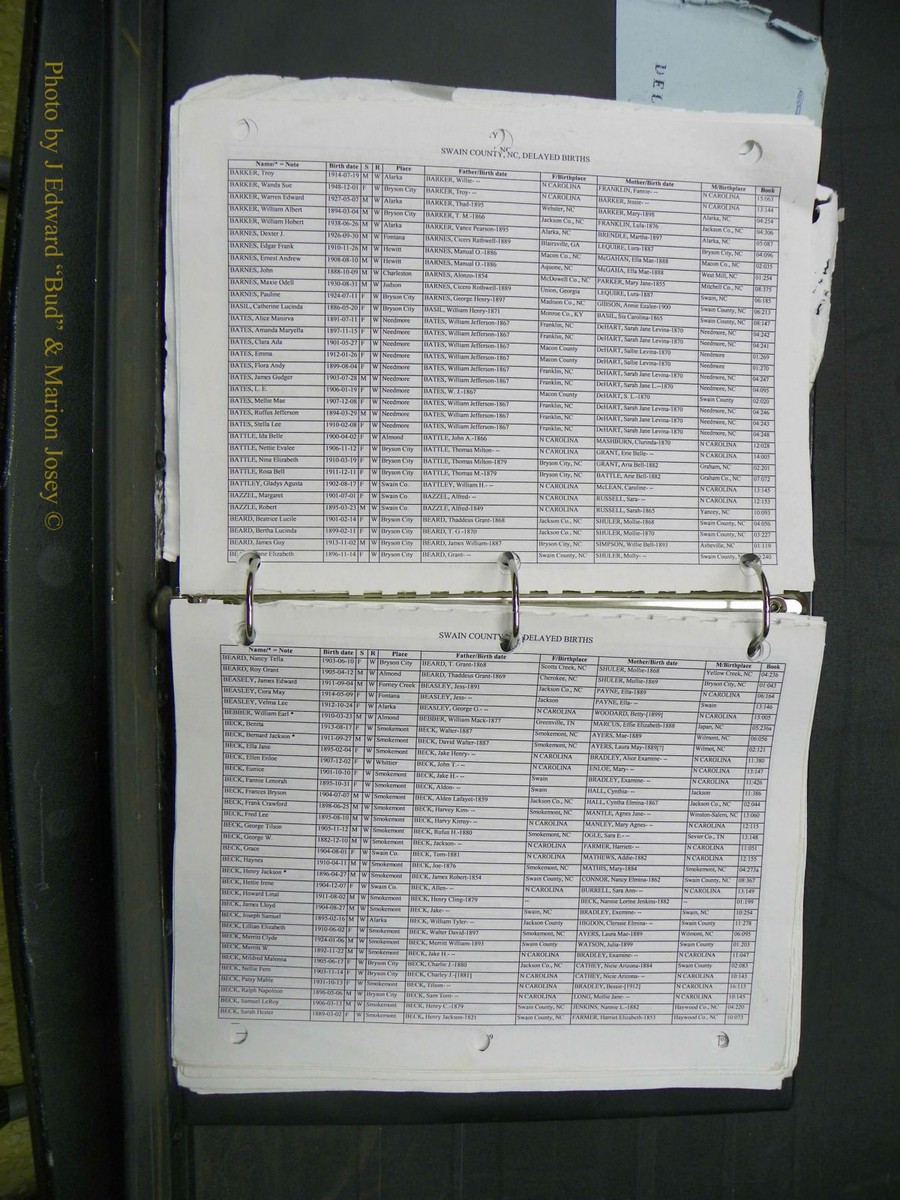 Photo by J Edward “Bud” & Marion Josey ©
DEL
SWAIN COUNTY, NC, DELAYED BIRTHS
Name/* = Note Birth date S R Place Father/Birth date F/Birthplace Mother/Birth date M/Birthplace Book
BARKER, Troy 1914-07-19 M W Alarka BARKER, Willie- -- N CAROLINA FRANKLIN, Fannie- -- N CAROLINA 15:063
BARKER, Wanda Sue 1948-12-01 F W Bryson City BARKER, Troy- -- N CAROLINA BARKER, Jessie- -- N CAROLINA 13:144
BARKER, Warren Edward 1927-05-07 M W Alarka BARKER, Thad-1895 Webster, NC BARKER, Mary-1898 Alarka, NC 04:254
BARKER, William Albert 1894-03-04 M W Bryson City BARKER, T. M.-1866 Jackson Co., NC FRANKLIN, Lula-1876 Jackson Co., NC 04:306
BARKER, William Hobert 1938-06-26 M W Alarka BARKER, Vance Pearson-1895 Alarka, NC BRENDLE, Martha-1897 Alarka, NC 05:087
BARNES, Dexter J. 1926-09-30 M W Fontana BARNES, Cicero Rothwell-1889 Blairsville, GA LEQUIRE, Lura-1887 Bryson City, NC 04:096
BARNES, Edgar Frank 1910-11-26 M W Hewitt BARNES, Manual O.-1886 Macon Co., NC McGAHAN, Ella Mae-1888 Macon Co., NC 02:035
BARNES, Ernest Andrew 1908-08-10 M W Hewitt BARNES, Manual O.-1886 Aquone, NC McGAHA, Ella Mae-1888 West Mill, NC 01:254
BARNES, John 1888-10-09 M W Charleston BARNES, Alonzo-1854 McDowell Co., NC PARKER, Mary Jane-1855 Mitchell Co., NC 08:375
BARNES, Maxie Odell 1930-08-31 M W Judson BARNES, Cicero Rothwell-1889 Union, Georgia LEQUIRE, Lura-1887 Swain, NC 06:185
BARNES, Pauline 1924-07-11 F W Bryson City BARNES, George Henry-1897 Madison Co., NC GIBSON, Annie Evalee-1900 Swain County, NC 06:213
BASIL, Catherine Lucinda 1886-05-20 F W Bryson City BASIL, William Henry-1871 Monroe Co., KY BASIL, Sie Carolina-1865 Swain County, NC 08:147
BATES, Alice Manirva 1891-07-11 F W Needmore BATES, William Jefferson-1867 Franklin, NC DeHART, Sarah Jane Levina-1870 Needmore, NC 04:242
BATES, Amanda Maryella 1897-11-15 F W Needmore BATES, William Jefferson-1867 Franklin, NC DeHART, Sarah Jane Levina-1870 Needmore, NC 04:241
BATES, Clara Ada 1901-05-27 F W Needmore BATES, William Jefferson-1867 Macon County DeHART, Sallie Levina-1870 Needmore 01:269
BATES, Emma 1912-01-26 F W Needmore BATES, William Jefferson-1867 Macon County DeHART, Sallie Levina-1870 Needmore 01:270
BATES, Flora Andy 1899-08-04 F W Needmore BATES, William Jefferson-1867 Franklin, NC DeHART, Sarah Jane Levina-1870 Needmore, NC 04:247
BATES, James Gudger 1903-07-28 M W Needmore BATES, William Jefferson-1867 Franklin, NC DeHART, Sarah Jane L.--1870 Needmore, NC 04:095
BATES, L. E. 1906-01-19 F W Needmore BATES, W. J.-1867 Macon County DeHART, S. L.-1870 Swain County 02:020
BATES, Mellie Mae 1907-12-08 F W Needmore BATES, William Jefferson-1867 Franklin, NC DeHART, Sarah Jane Levina-1870 Needmore, NC 04:246
BATES, Ruffus Jefferson 1894-03-29 M W Needmore BATES, William Jefferson-1867 Franklin, NC DeHART, Sarah Jane Levina-1870 Needmore, NC 04:243
BATES, Stella Lee 1910-02-08 F W Needmore BATES, William Jefferson-1867 Franklin, NC DeHART, Sarah Jane Levina-1870 Needmore, NC 04:248
BATTLE, Ida Belle 1900-04-02 F W Almond BATTLE, John A.-1866 N CAROLINA MASHBURN, Clurinda-1870 N CAROLINA 12:028
BATTLE, Nettie Evalee 1906-11-12 F W Bryson City BATTLE, Thomas Milton- -- N CAROLINA GRANT, Erie Belle- -- N CAROLINA 14:005
BATTLE, Nina Elizabeth 1910-03-19 F W Bryson City BATTLE, Thomas Milton-1879 Bryson City, NC GRANT, Aria Bell-1882 Graham, NC 02:201
BATTLE, Rosa Bell 1911-12-11 F W Bryson City BATTLE, Thomas M.-1879 Bryson City, NC BATTLE, Arie Bell-1882 Graham Co., NC 07:072
BATTLEY, Gladys Agusta 1902-08-17 F W Swain Co. BATTLEY, William H.- -- N CAROLINA McLEAN, Caroline- -- N CAROLINA 13:145
BAZZEL, Margaret 1901-07-01 F W Swain Co BAZZEL, Alfred- -- N CAROLINA RUSSELL, Sara- -- N CAROLINA 12:153
BAZZLE, Robert 1895-03-23 M W Swain Co. BAZZLE, Alfred-1849 N CAROLINA RUSSELL, Sarah-1865 Yancey, NC 10:093
BEARD, Beatrice Lucile 1901-02-14 F W Bryson City BEARD, Thaddeus Grant-1868 Jackson Co., NC SHULER, Mollie-1868 Swain County, NC 04:056
BEARD, Bertha Lucinda 1899-02-11 F W Bryson City BEARD, T. G.-1870 Jackson Co., NC SHULER, Mollie-1870 Swain County, NC 03:227
BEARD, James Guy 1913-11-02 M W Bryson City BEARD, James William-1887 Bryson City, NC SIMPSON, Willie Bell-1893 Asheville, NC 01:119
Elizabeth 1896-11-14 F W Bryson City BEARD, Grant- -- Swain County, NC SHULER, Molly- -- Swain County, NC :240
SWAIN COUNTY DELAYED BIRTHS
Name/* = Note Birth date S R Place Father/Birth date F/Birthplace Mother/Birth date M/Birthplace Book
BEARD, Nancy Tella 1903-06-10 F W Bryson City BEARD, T. Grant-1868 Scotts Creek, NC SHULER, Mollie-1868 Yellow Creek, NC 04:236
BEARD, Roy Grant 1905-04-12 M W Almond BEARD, Thaddeus Grant-1869 Cherokee, NC SHULER, Mollie-1869 Bryson City, NC 01:043
BEASELY, James Edward 1911-09-04 M W Forney Creek BEASLEY, Jess-1891 Jackson Co., NC PAYNE, Ella-1889 N CAROLINA 06:164
BEASLEY, Cora May 1914-05-09 F W Fontana BEASLEY, Jess- -- Jackson PAYNE, Ella- -- Swain 13:146
BEASLEY, Velma Lee 1912-10-24 F W Alarka BEASLEY, George G.- -- N CAROLINA WOODARD, Betty-[1899] N CAROLINA 15:005
BEBBER, William Earl * 1910-03-23 M W Almond BEBBER, William Mack-1877 Greenville, TN MARCUS, Effie Elizabeth-1888 Japan, NC 05:236a
BECK, Benita 1913-08-17 F W Smokemont BECK, Walter-1887 Smokemont, NC AYERS, Mae-1889 Wilmont, NC 06:056
BECK, Bernard Jackson * 1911-09-27 M W Smokemont BECK, David Walter-1887 Smokemont, NC AYERS, Laura May-1889[?] Wilmot, NC 02:121
BECK, Ella Jane 1895-02-04 F W Smokemont BECK, Jake Henry- -- N CAROLINA BRADLEY, Alice Examine- -- N CAROLINA 11:380
BECK, Ellen Enloe 1907-12-02 F W Whittier BECK, John T.- -- N CAROLINA ENLOE, Mary- -- N CAROLINA 13:147
BECK, Eunice 1901-10-10 F W Smokemont BECK, Jake H.- -- Swain BRADLEY, Examine- -- N CAROLINA 11:426
BECK, Fannie Lenorah 1895-10-31 F W Smokemont BECK, Aldon- -- Swain HALL, Cynthia- -- Jackson 11:386
BECK, Frances Bryson 1904-07-07 M W Smokemont BECK, Alden Lafayet-1859 Jackson Co., NC HALL, Cyntha Elmina-1867 Jackson Co., NC 02:044
BECK, Frank Crawford 1898-06-25 M W Smokemont BECK, Harvey Kim- -- Smokemont, NC MANTLE, Agnes Jane- -- Winston-Salem, NC 13:060
BECK, Fred Lee 1895-08-10 M W Smokemont BECK, Harvy Kimsy- -- N CAROLINA MANLEY, Mary Agnes- -- N CAROLINA 12:115
BECK, George Tilson 1905-11-12 M W Smokemont BECK, Rufus H.-1880 Smokemont, NC OGLE, Sara E.- -- Sevier Co., TN 13:148
BECK, George W. 1882-12-10 M W Smokemont BECK, Jackson- -- N CAROLINA FARMER, Harriett- -- N CAROLINA 11:051
BECK, Grace 1904-08-01 F W Swain Co. BECK, Tom-1881 N CAROLINA MATHEWS, Addie-1882 N CAROLINA 12:155
BECK, Haynes 1910-04-11 M W Smokemont BECK, Joe-1876 Smokemont, NC MATHIS, Mary-1884 Smokemont, NC 04:273a
BECK, Henry Jackson * 1896-04-27 M W Smokemont BECK, James Robert-1854 Swain County, NC CONNOR, Nancy Elmina-1862 Swain County, NC 08:367
BECK, Hettie Irene 1904-12-07 F W Swain Co. BECK, Allen- -- N CAROLINA BURRELL, Sara Ann- -- N CAROLINA 13:149
BECK, Howard Linal 1911-08-02 M W Smokemont BECK, Henry Cling-1879 -- BECK, Nannie Lorine Jenkins-1882 -- 01:199
BECK, James Lloyd 1904-08-27 M W Smokemont BECK, Jake- -- Swain, NC BRADLEY, Examine- -- Swain, NC 10:254
BECK, Joseph Samuel 1895-02-16 M W Alarka BECK, William Tyler- -- Jackson County IBGDON, Clessie Elmina- -- Swain County 11:278
BECK, Lillian Elizabeth 1910-06-02 F W Smokemont BECK, Walter David-1897 Smokemont, NC AYERS, Laura Mae-1889 Wilmont, NC 06:095
BECK, Merritt Clyde 1924-01-06 M W Smokemont BECK, Merritt William-1893 Swain County WATSON, Julia-1899 Swain County 01:203
BECK, Merritt W. 1892-11-22 M W Smokemont BECK, Jake H.- -- N CAROLINA BRADLEY, Examine- -- N CAROLINA 11:047
BECK, Mildred Malonna 1905-06-17 F W Bryson City BECK, Charlie J.-1880 Jackson Co., NC CATHEY, Nicie Arizona-1884 Swain County 02:083
BECK, Nellie Fern 1903-11-14 F W Bryson City BECK, Charley J.-[1881] N CAROLINA CATHEY, Nicie Arizona- -- N CAROLINA 10:143
BECK, Patsy Mable 1931-10-13 F W Smokemont BECK, Tilson- -- N CAROLINA BRADLEY, Bessie-[1912] N CAROLINA 16:113
BECK, Ralph Napoleon 1896-05-06 M W Bryson City BECK, Sam Tom- -- N CAROLINA LONG, Mollie Jane- -- N CAROLINA 10:145
BECK, Samuel LeRoy 1906-03-13 M W Smokemont BECK, Henry C.-1879 Swain County, NC JENKINS, Nannie L.-1882 Haywood Co., NC 04:220
BECK, Sarah Hester 1889-03-02 F W Smokemont BECK, Henry Jackson-1821 Swain County, NC FARMER, Harriet Elizabeth-1853 Haywood Co., NC 10:073